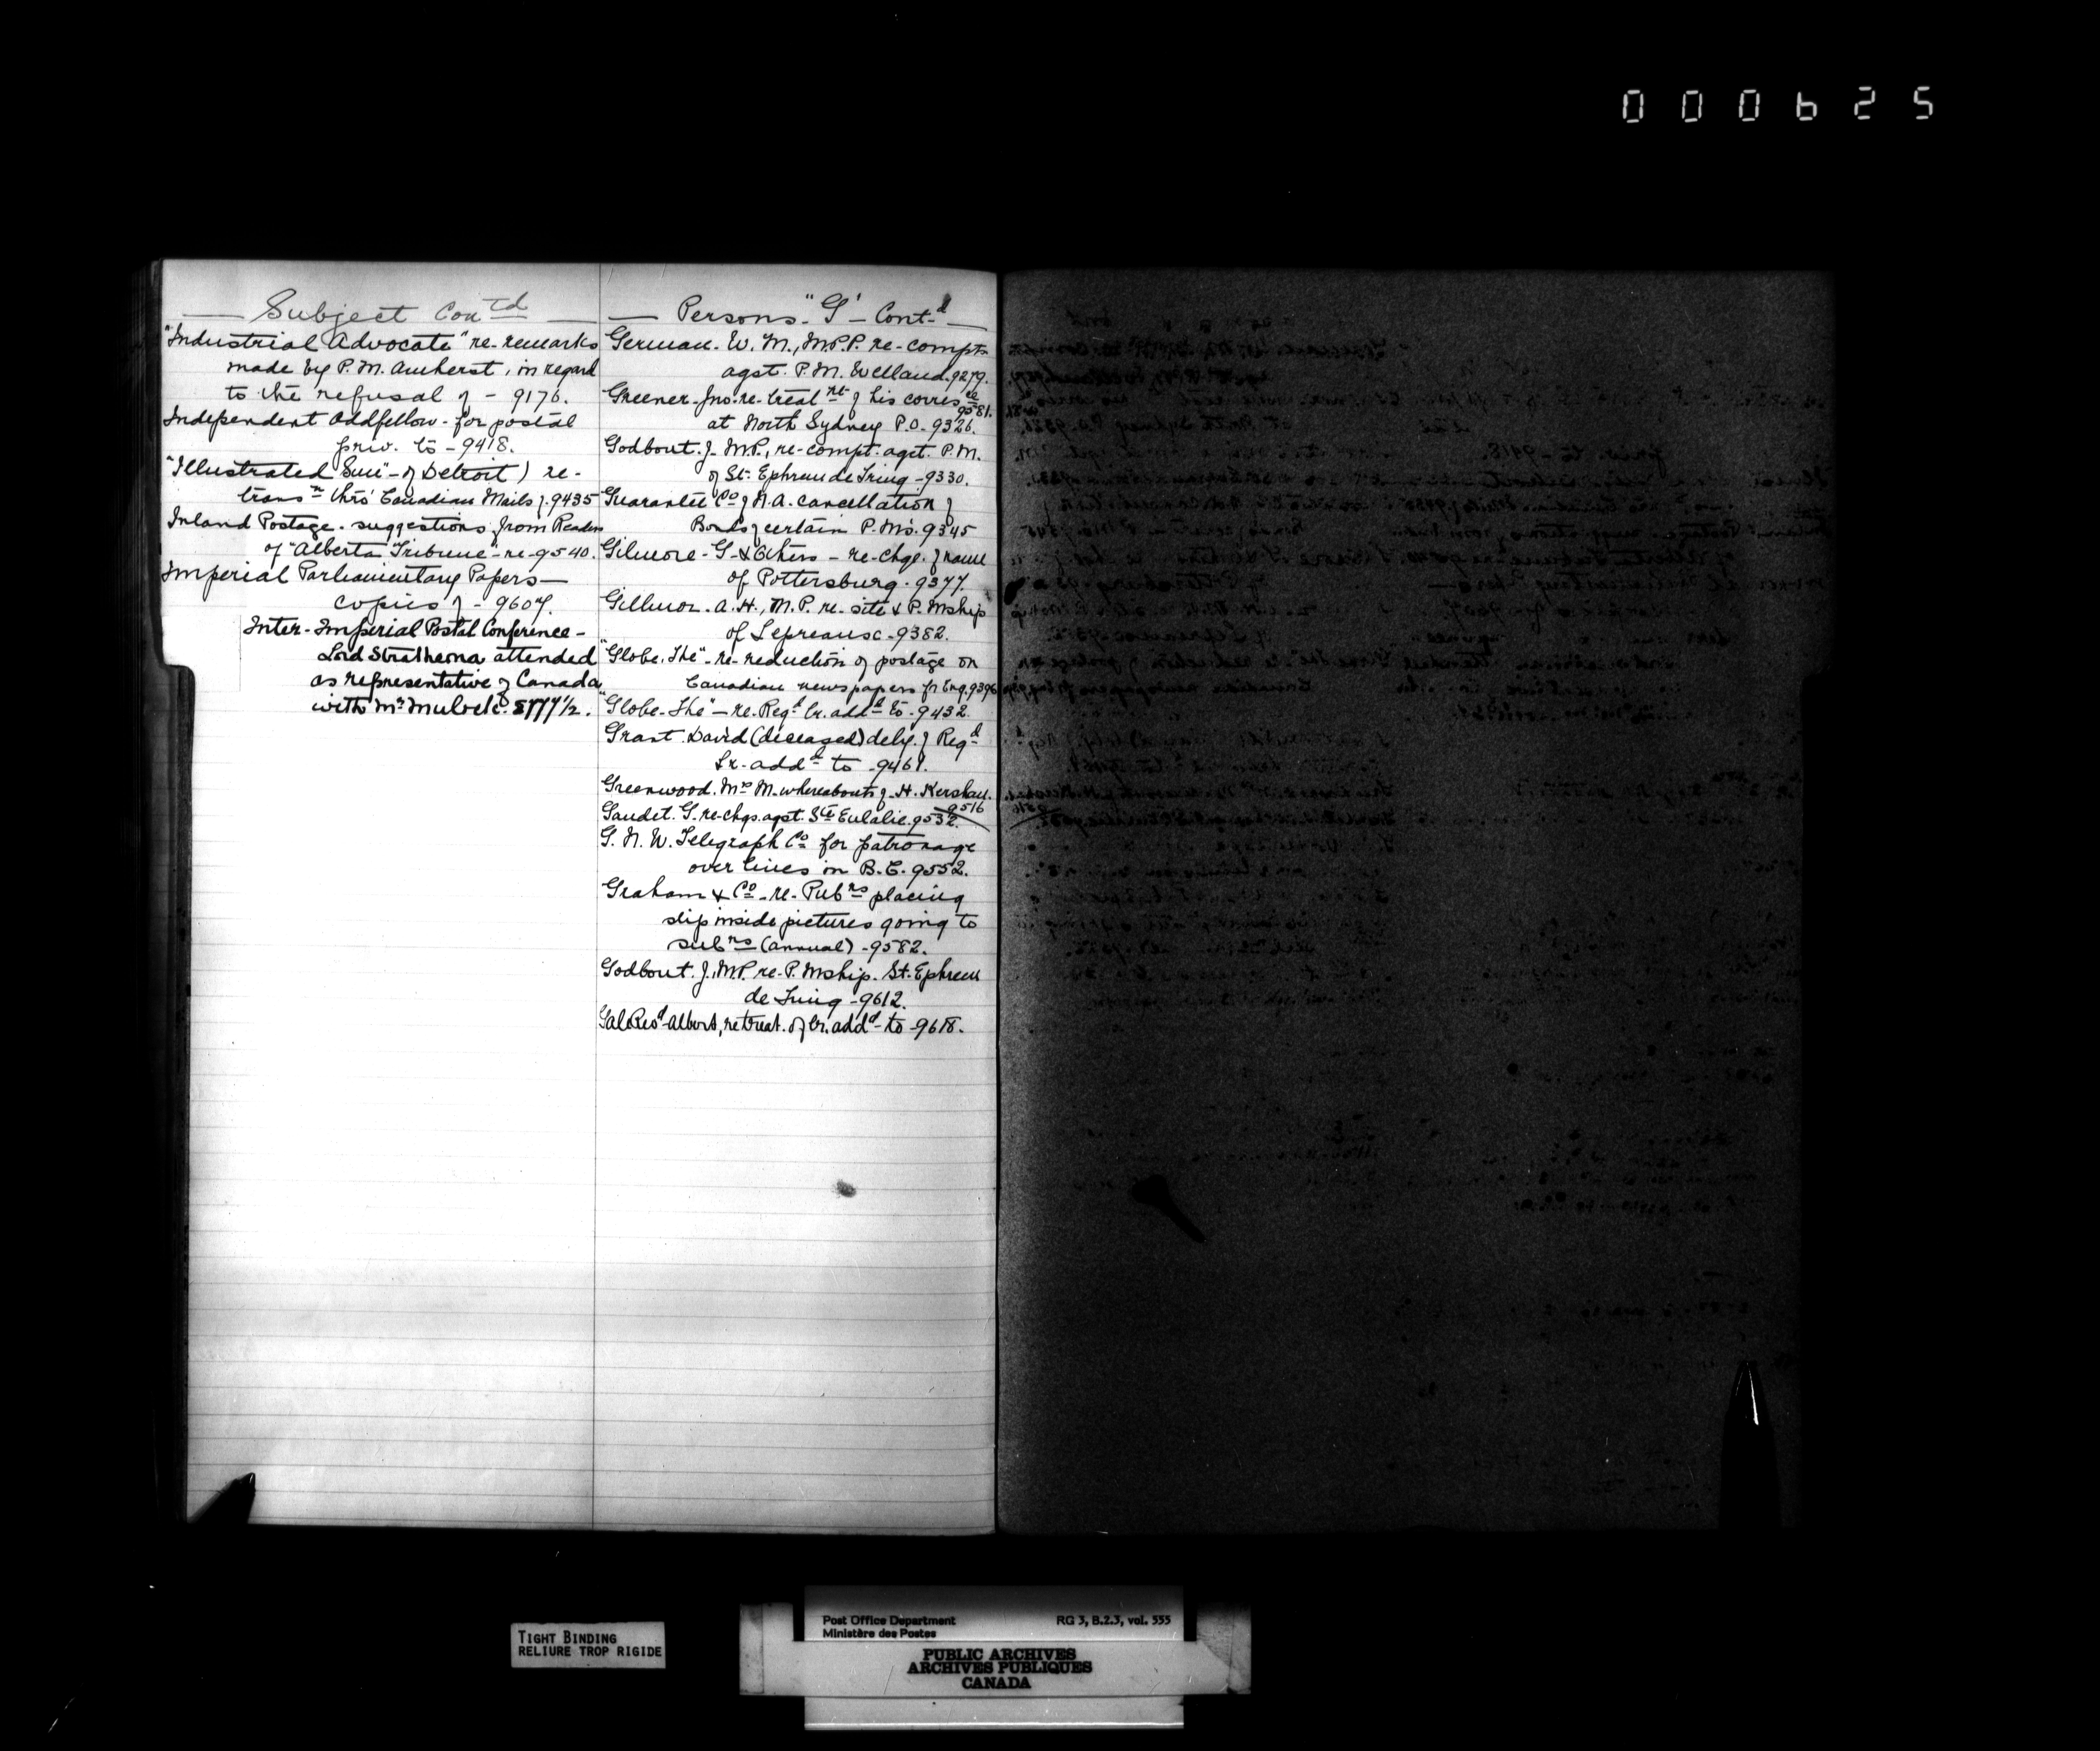 000625
Subject Contd
"Industrial Advocate" re-remarks
made by P.M. Amherst, in regard
to the refusal of - 9176.
Independent Oddfellow - for postal
priv. to - 9418.
"Illustrated Sun" - of Detroit) re-
transn thro' Canadian Mails of. 9435
Inland Postage - suggestions from Readers
of "Alberta Tribune" - re - 9540.
Imperial Parliamentary Papers—
copies of - 9607.
Inter-Imperial Postal Conference -
Lord Strathcona attended
as representative of Canada
with Mr Mulock.
Persons - "G" - Contd
German - W. M., M.P.P. re-compt
agst. P.M. Welland. 9279.
Greener - Jno. re-treatmt of his corresce
9581.
at North Sydney P.O. 9326.
Godbout. J. M.P., re-compt. agst. P.M.
of St. Ephrem de Tring - 9330.
Guarantee Co of N.A. cancellation of
Bonds of certain P.Ms. 9345
Gilmore - G. & Others - re-chge. of name
of Pottersburg. 9377.
Gillmor. A. H., M.P. re-site & P.Mship
of Lepreausc - 9382.
"Globe, The" - re-reduction of postage on
Canadian newspapers fr Eng. 9396
"Globe - The" - re-Regd lr. addd to - 9432.
Grant. David (deceased) dely. of Regd
Lr. addd to - 9461.
Greenwood. Mrs M. whereabouts of - H. Kershaw.
9516
Gaudet. G. re-chgs. agst. Ste Eulalie. 9532.
G. N. W. Telegraph Co for patronage
over lines in B.C. 9552.
Graham & Co - re-Pubrs placing
slip inside pictures going to
subrs (annual) - 9582.
Godbout. J. M.P. re-P.Mship. St. Ephrem
de Tring - 9612.
Albert, re treat. of lr. addd to - 9618.
TIGHT BINDING
RELIURE TROP RIGIDE
Post Office Department RG 3, B.2.3, vol. 555
Ministère des Postes
PUBLIC ARCHIVES
ARCHIVES PUBLIQUES
CANADA